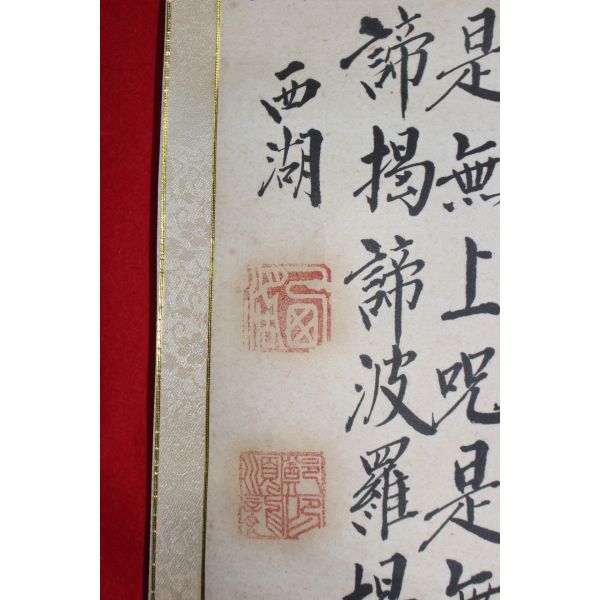 是無上呪是無
諦揭諦波羅揭
西湖